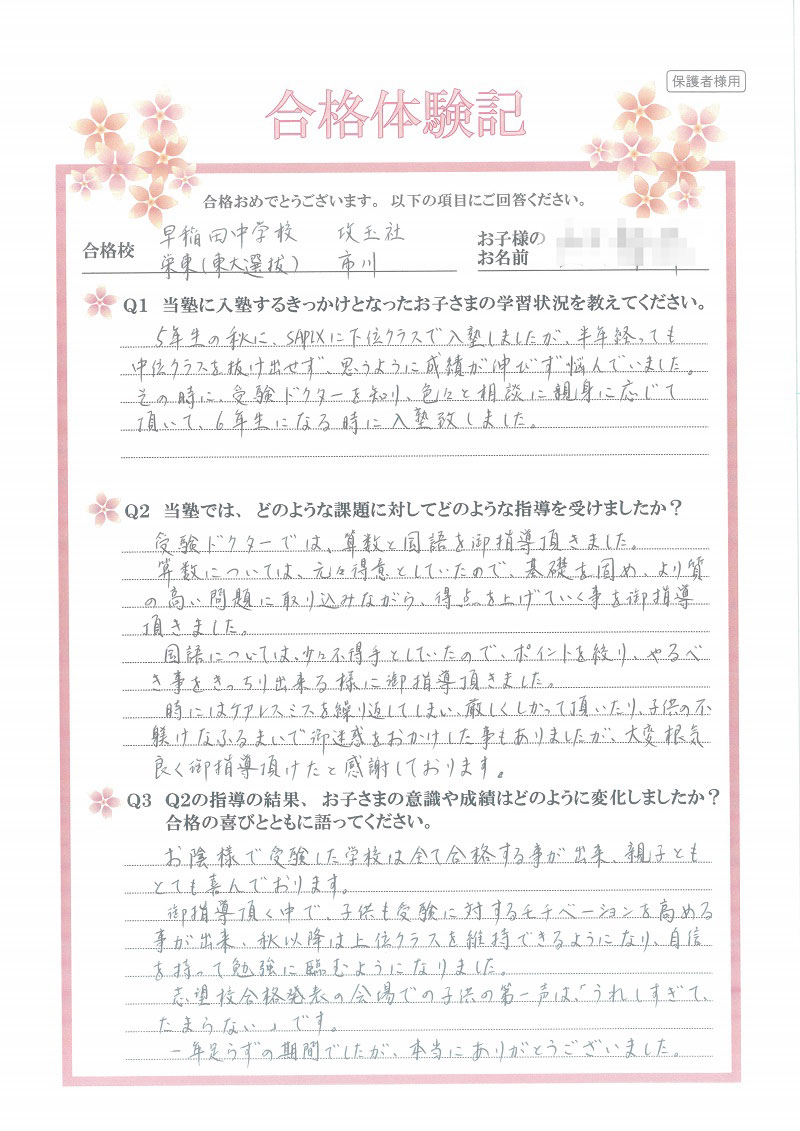 保護者様用
合格体験記
合格おめでとうございます。以下の項目にご回答ください。
合格校 早稲田中学校 攻玉社
栄東(東大選抜) 市川
お子様の
お名前
Q1 当塾に入塾するきっかけとなったお子さまの学習状況を教えてください。
5年生の秋に、SAPIXに下位クラスで入塾しましたが、半年経っても
中位クラスを抜け出せず、思うように成績が伸びず悩んでいました。
その時に、受験ドクターを知り、色々と相談に親身に応じて
頂いて、6年生になる時に入塾致しました。
Q2 当塾では、どのような課題に対してどのような指導を受けましたか?
受験ドクターでは、算数と国語を御指導頂きました。
算数については、元々得意としていたので、基礎を固め、より質
の高い問題に取り込みながら、得点を上げていく事を御指導
頂きました。
国語については、少々不得手としていたので、ポイントを絞り、やるべ
き事をきっちり出来る様に御指導頂きました。
時にはケアレスミスを繰り返してしまい、厳しくしかって頂いたり、子供の不
躾けなふるまいで御迷惑をおかけした事もありましたが、大変根気
良く御指導頂けたと感謝しております。
Q3 Q2の指導の結果、お子さまの意識や成績はどのように変化しましたか?
合格の喜びとともに語ってください。
お陰様で受験した学校は全て合格する事が出来、親子とも
とても喜んでおります。
御指導頂く中で、子供も受験に対するモチベーションを高める
事が出来、秋以降は上位クラスを維持できるようになり、自信
を持って勉強に臨むようになりました。
志望校合格発表の会場での子供の第一声は、「うれしすぎて、
たまらない」です。
一年足らずの期間でしたが、本当にありがとうございました。